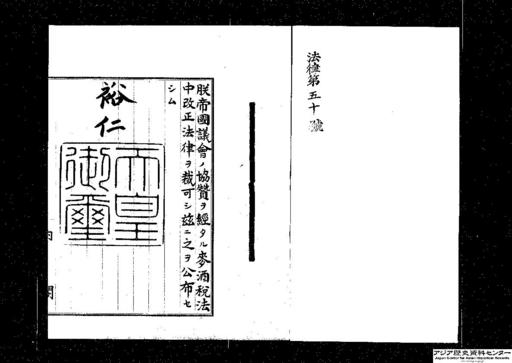 法律第五十號
朕帝國議會ノ協贊ヲ經タル麥酒稅法
中改正法律ヲ裁可シ玆ニ之ヲ公布セ
シム
裕仁
天皇
御璽
内閣
アジア歴史資料センター
Japan Center for Asian Historical Records